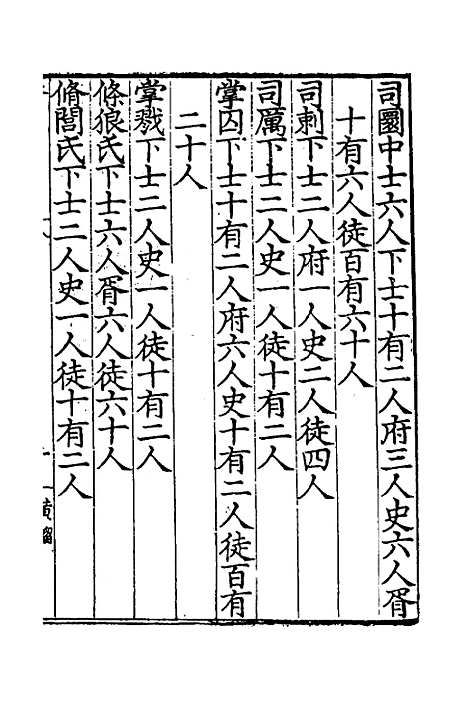 司圜中士六人下士十有二人府三人史六人胥
十有六人徒百有六十人
司刺下士二人府一人史二人徒四人
司厲下士二人史一人徒十有二人
掌囚下士十有二人府六人史十有二人徒百有
二十人
掌戮下士二人史一人徒十有二人
條狼氏下士六人胥六人徒六十人
脩閭氏下士二人史一人徒十有二人